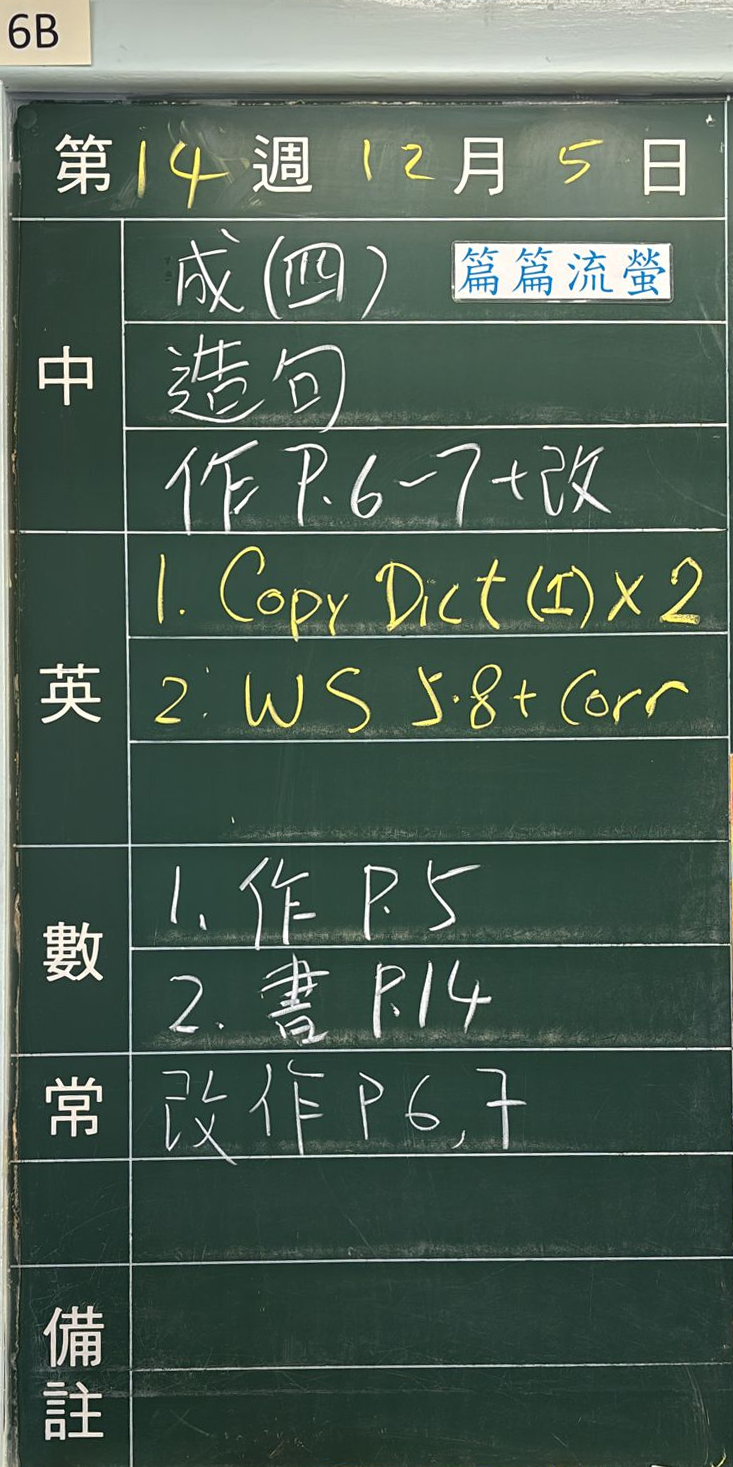 6B
第14週 12月5日
中
成(四) 篇篇流螢
造句
作 P.6-7+改
英
1. Copy Dict (1) x 2
2. WS 5.8 + Corr
數
1. 作 P.5
2. 書 P.14
常
改作 P 6,7
備註